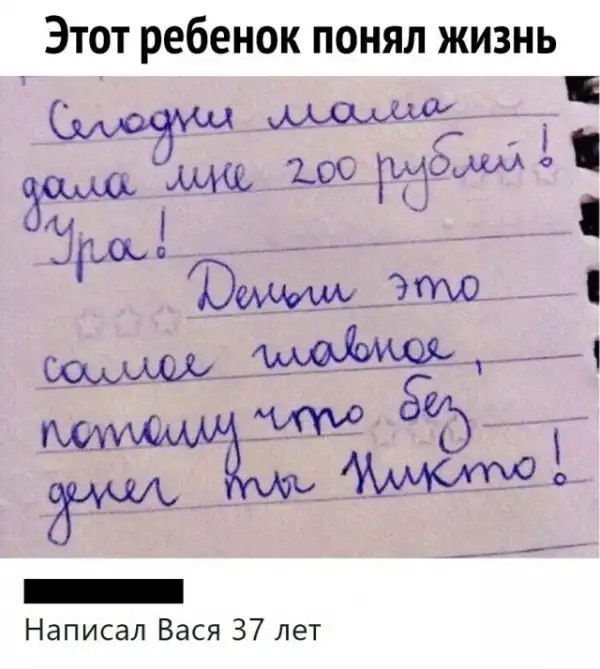 Этот ребенок понял жизнь
Сегодня мама
дала мне 200 рублей!
Ура!
Деньги это
самое главное,
потому что без
денег ты Никто!
Написал Вася 37 лет